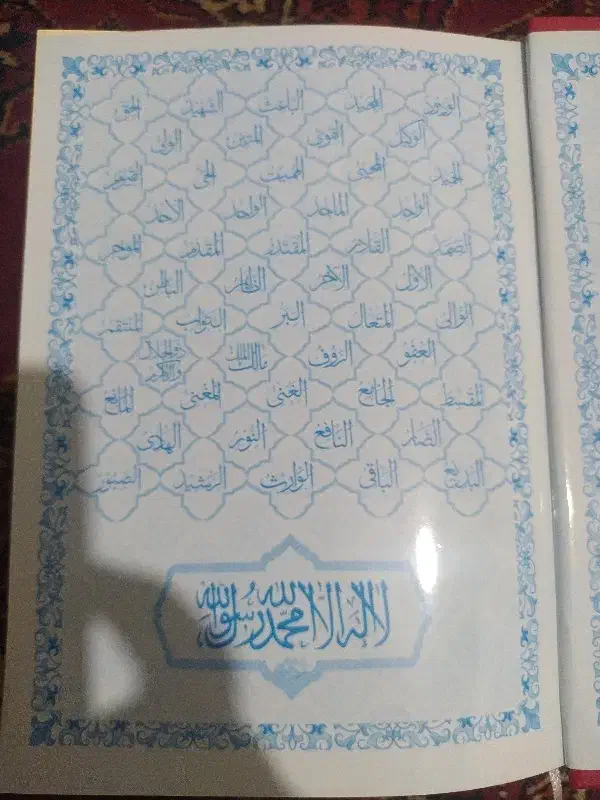 الودود المجيد الباعث الشهيد الحق
الوكيل القوى المتين الولى
الحميد المحيى المميت الحى القيوم
الواجد الماجد الواحد الاحد
الصمد القادر المقتدر المقدم الموخر
الاول الاخر الظاهر الباطن
الوالى المتعال البر التواب المنتقم
العفو الروف مالك الملك ذو الجلال والاكرام
المقسط الجامع الغنى المغنى المانع
الضار النافع النور الهادى
البديع الباقى الوارث الرشيد الصبور
لا اله الا الله محمد رسول الله